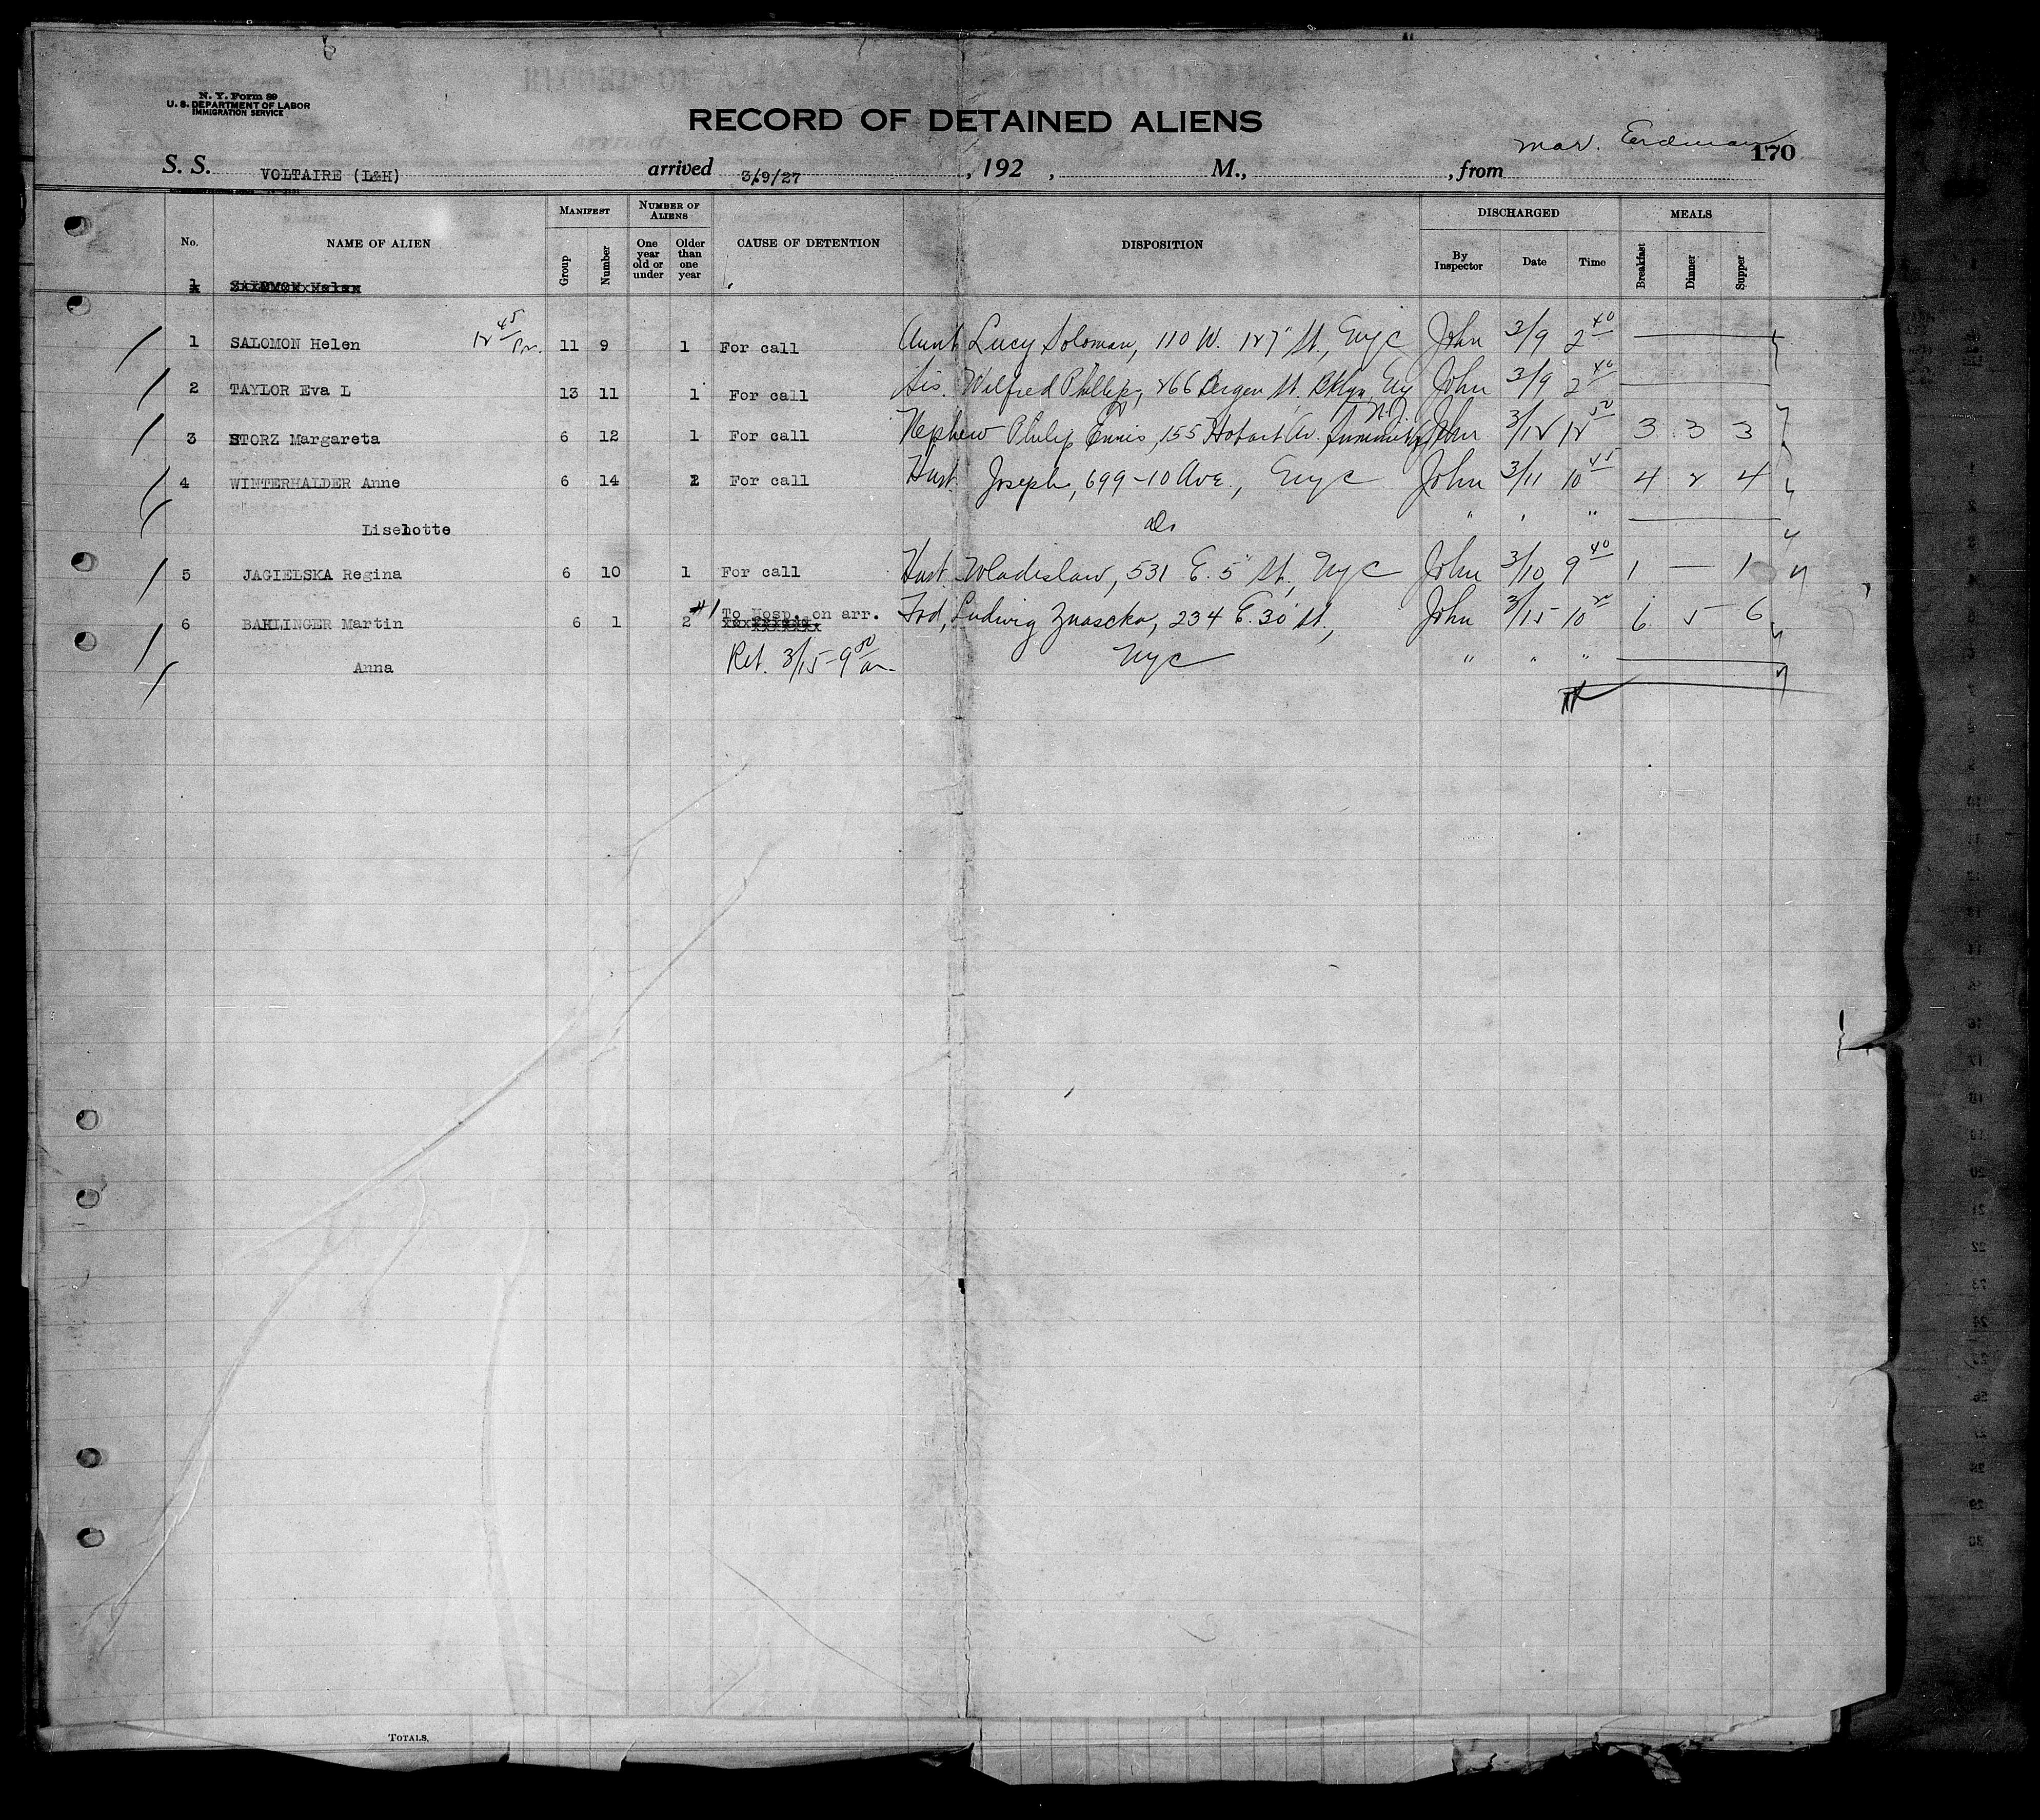 N. Y. Form 89
U. S. DEPARTMENT OF LABOR
IMMIGRATION SERVICE
RECORD OF DETAINED ALIENS
mar. Erdman 170
S. S. VOLTAIRE (L&H) arrived 3/9/27, 192 , M., , from
No. NAME OF ALIEN MANIFEST Group Number NUMBER OF ALIENS One year old or under Older than one year CAUSE OF DETENTION DISPOSITION DISCHARGED By Inspector Date Time MEALS Breakfast Dinner Supper
1 SALOMON Helen
1 SALOMON Helen 12 45 Pm. 11 9 1 For call Aunt Lucy Soloman, 110 W. 127" St., Nyc John 3/9 2 40
2 TAYLOR Eva L 13 11 1 For call Sis. Wilfred Phillip, 266 Bergen St. Bklyn, Ny John 3/9 2 40
3 STORZ Margareta 6 12 1 For call Nephew Philip Ennis, 155 Hobart Av. Summit, N.J. John 3/12 12 50 3 3 3
4 WINTERHALDER Anne 6 14 2 For call Hust. Joseph, 699-10 Ave., Nyc John 3/11 10 45 4 2 4
Liselotte Do " " "
5 JAGIELSKA Regina 6 10 1 For call Hust. Wladislaw, 531 E. 5" St., Nyc John 3/10 9 40 1 — 1
6 BAHLINGER Martin 6 1 2 #1 To Hosp. on arr. Frd, Ludwig Znascko, 234 E. 30 St., John 3/15 10 20 6 5 6
Anna Ret. 3/15-9 50 am. Nyc " " "
TOTALS.